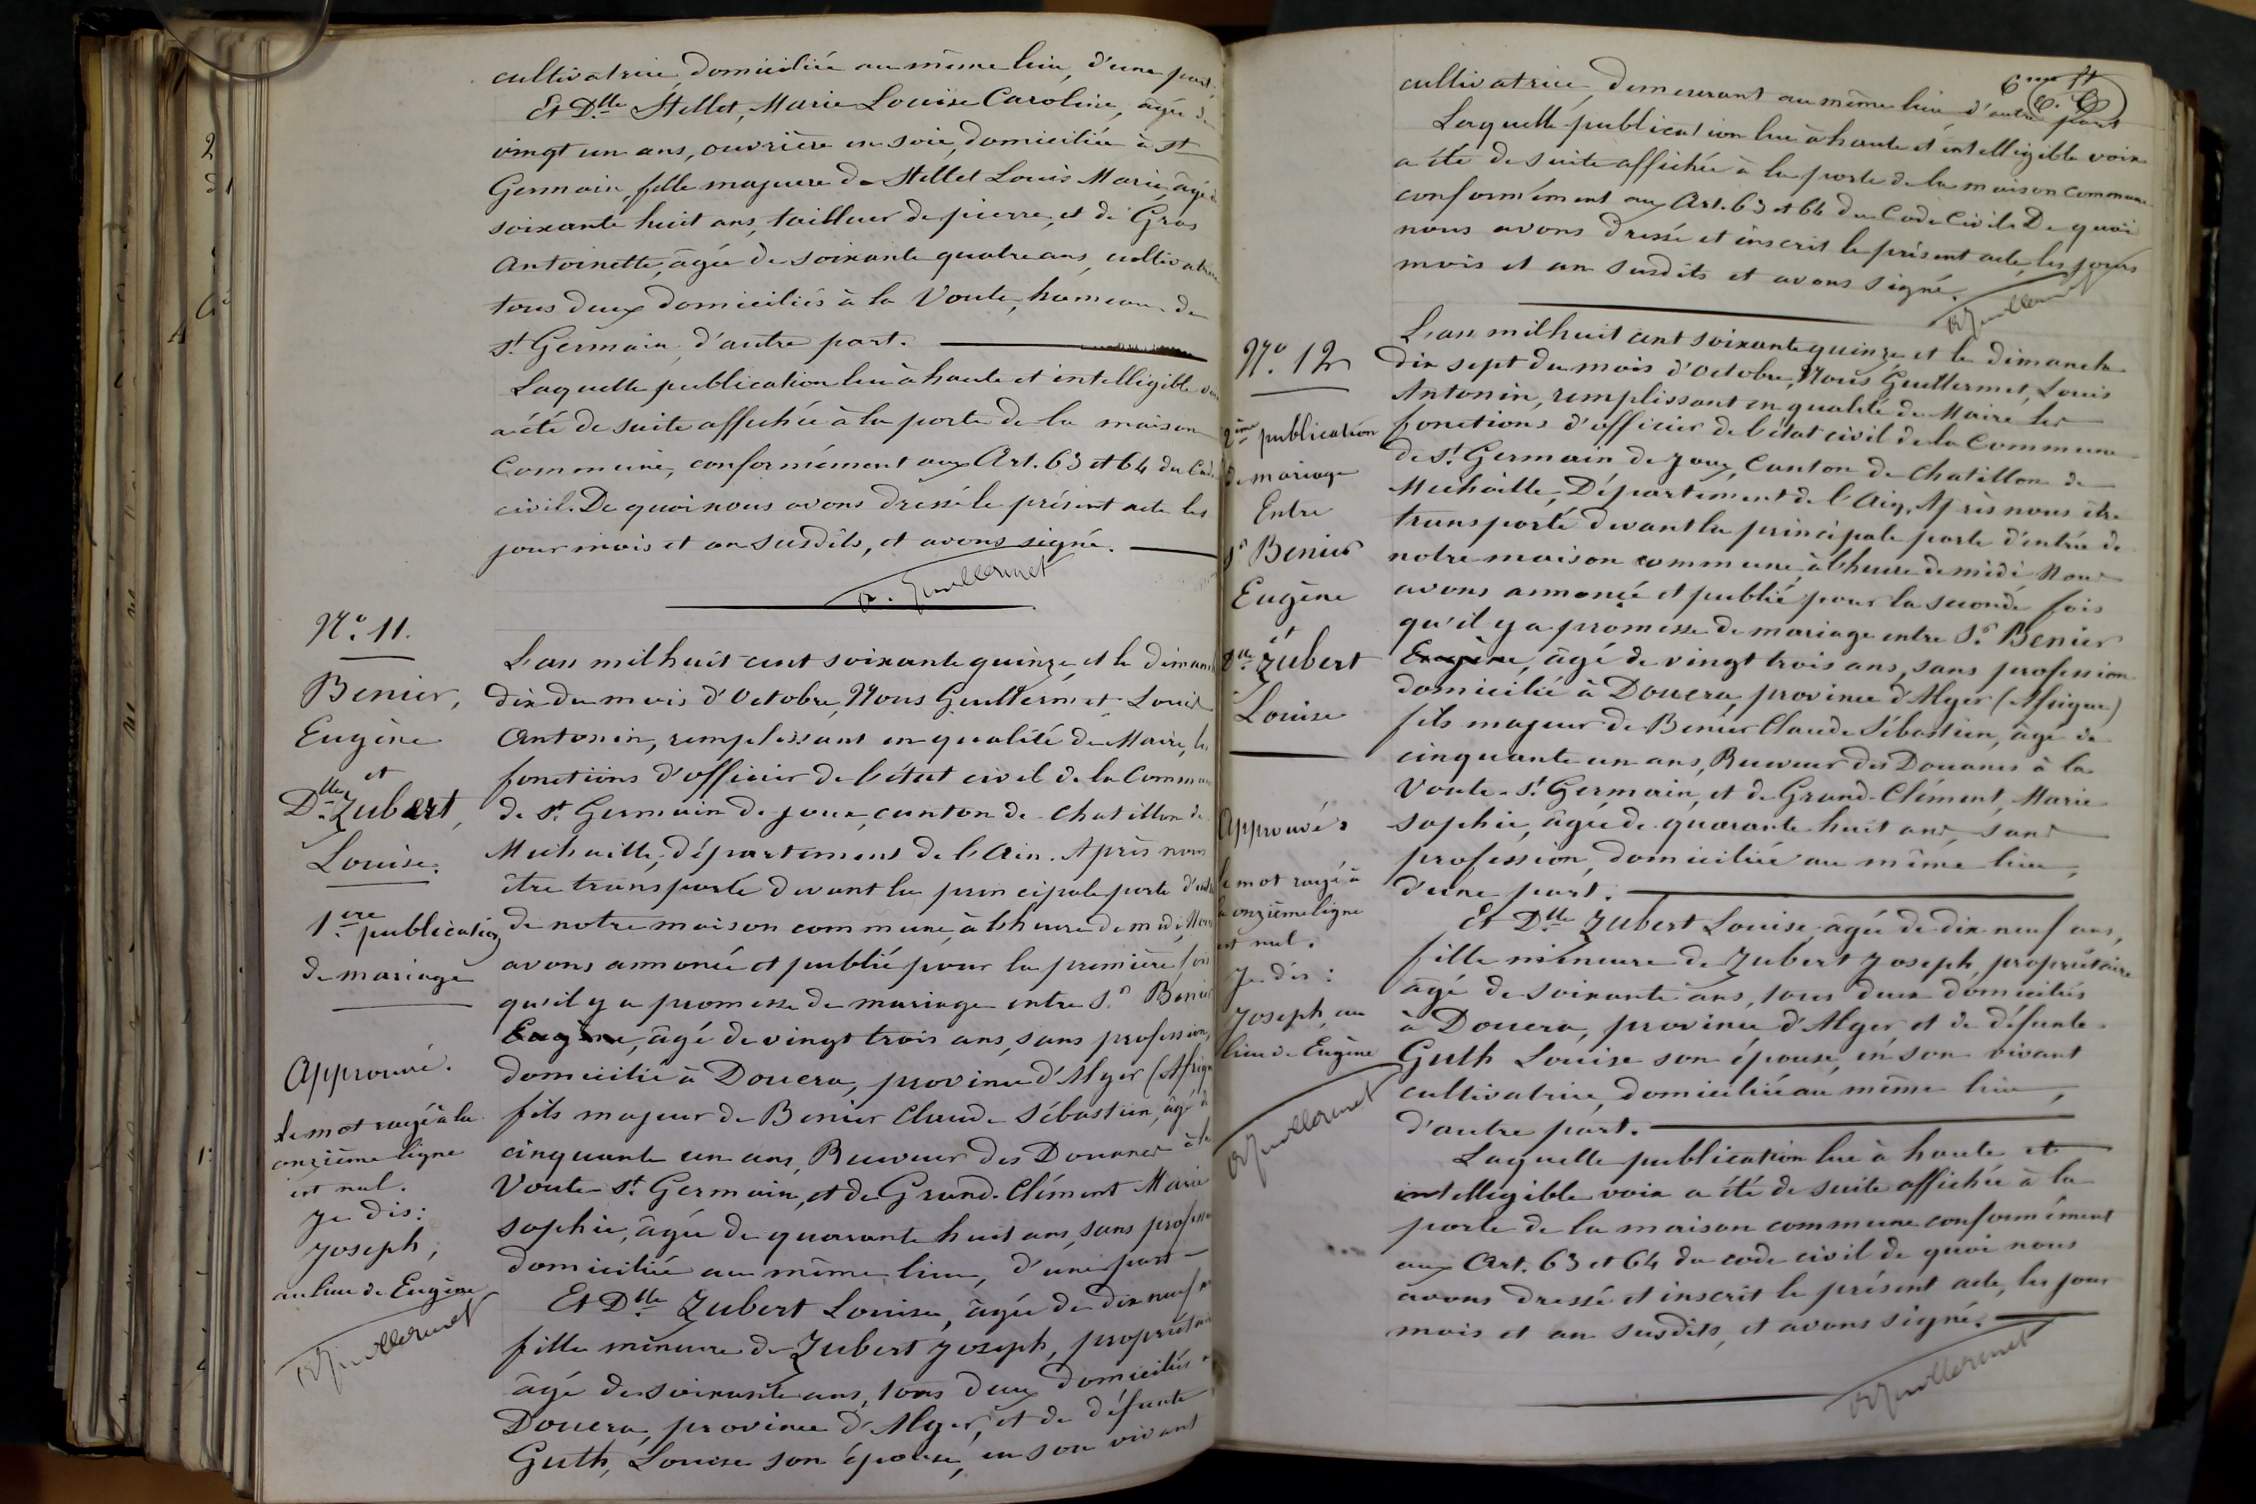 cultivatrice, domiciliée au même lieu, d'une part.
Et D.lle Stellet, Marie Louise Caroline, âgée de
vingt un ans, ouvrière en soie, domiciliée à St
Germain, fille majeure de Stellet Louis Marie, âgé de
soixante huit ans, tailleur de pierre, et de Gros
Antoinette, âgée de soixante quatre ans, cultivatrice
tous deux domiciliés à la Voute, hameau de
St. Germain, d'autre part.
Laquelle publication lue à haute et intelligible voix
a été de suite affichée à la porte de la maison
Commune, conformément aux Art. 63 et 64 du Code
civil. De quoi nous avons dressé le présent acte les
jour mois et an susdits, et avons signé.
A. Guillermet
N.o 11.
Benier,
Eugène
et
D.lle Zubert,
Louise.
1.ere publication
de mariage
Approuvé.
Le mot rayé à la
onzième ligne
est nul.
Je dis:
Joseph,
au lieu de Eugène
A Guillermet
L'an mil huit cent soixante quinze, et le dimanche
dix du mois d'Octobre, Nous Guillermet Louis
Antonin, remplissant en qualité de Maire, les
fonctions d'officier de l'état civil de la Commune
de St. Germain de Joux, canton de Chatillon de
Michaille, département de l'Ain. Après nous
être transporté devant la principale porte d'entrée
de notre maison commune, à l'heure de midi, Nous
avons annoncé et publié pour la première fois
qu'il y a promesse de mariage entre S.r Benier
Eugène, âgé de vingt trois ans, sans profession,
domicilié à Douera, province d'Alger (Afrique)
fils majeur de Benier Claude Sébastien, âgé de
cinquante un ans, Receveur des Douanes à la
Voute-St. Germain, et de Grand-Clément Marie
Sophie, âgée de quarante huit ans, sans profession
domiciliée au même lieu, d'une part
Et D.lle Zubert Louise, âgée de dix neuf ans
fille mineure de Zubert Joseph, propriétaire
âgé de soixante ans, tous deux domiciliés à
Douera, province d'Alger, et de défunte
Guth, Louise son épouse, en son vivant
6me ft
cultivatrice, demeurant au même lieu d'autre part
Laquelle publication lue à haute et intelligible voix
a été de suite affichée à la porte de la maison commune
conformément aux Art. 63 et 64 du Code Civil. De quoi
nous avons dressé et inscrit le présent acte, les jours
mois et an susdits et avons signé.
A Guillermet
N.o 12
2.ème publication
de mariage
Entre
S.r Benier
Eugène
et
D.lle Zubert
Louise
Approuvé:
le mot rayé à
la onzième ligne
est nul.
Je dis:
Joseph, au
lieu de Eugène
A Guillermet
L'an mil huit cent soixante quinze et le dimanche
dix sept du mois d'octobre, Nous Guillermet, Louis
Antonin, remplissant en qualité de Maire les
fonctions d'officier de l'état civil de la Commune
de St. Germain de Joux, Canton de Chatillon de
Michaille, Département de l'Ain, Après nous être
transporté devant la principale porte d'entrée de
notre maison commune, à l'heure de midi Nous
avons annoncé et publié pour la seconde fois
qu'il y a promesse de mariage entre S.r Benier
Eugène, âgé de vingt trois ans, sans profession
domicilié à Douera, province d'Alger (Afrique)
fils majeur de Benier Claude Sébastien, âgé de
cinquante un ans, Receveur des Douanes à la
Voute-St. Germain, et de Grand-Clément, Marie
Sophie, âgée de quarante huit ans, sans
profession, domiciliée au même lieu,
d'une part.
Et D.lle Zubert Louise, âgée de dix neuf ans,
fille mineure de Zubert Joseph, propriétaire
âgé de soixante ans, tous deux domiciliés
à Douera, province d'Alger, et de défunte
Guth Louise son épouse, en son vivant
cultivatrice, domiciliée au même lieu,
d'autre part.
Laquelle publication lue à haute et
intelligible voix a été de suite affichée à la
porte de la maison commune conformément
aux Art. 63 et 64 du code civil de quoi nous
avons dressé et inscrit le présent acte, les jour
mois et an susdits, et avons signé.
A Guillermet